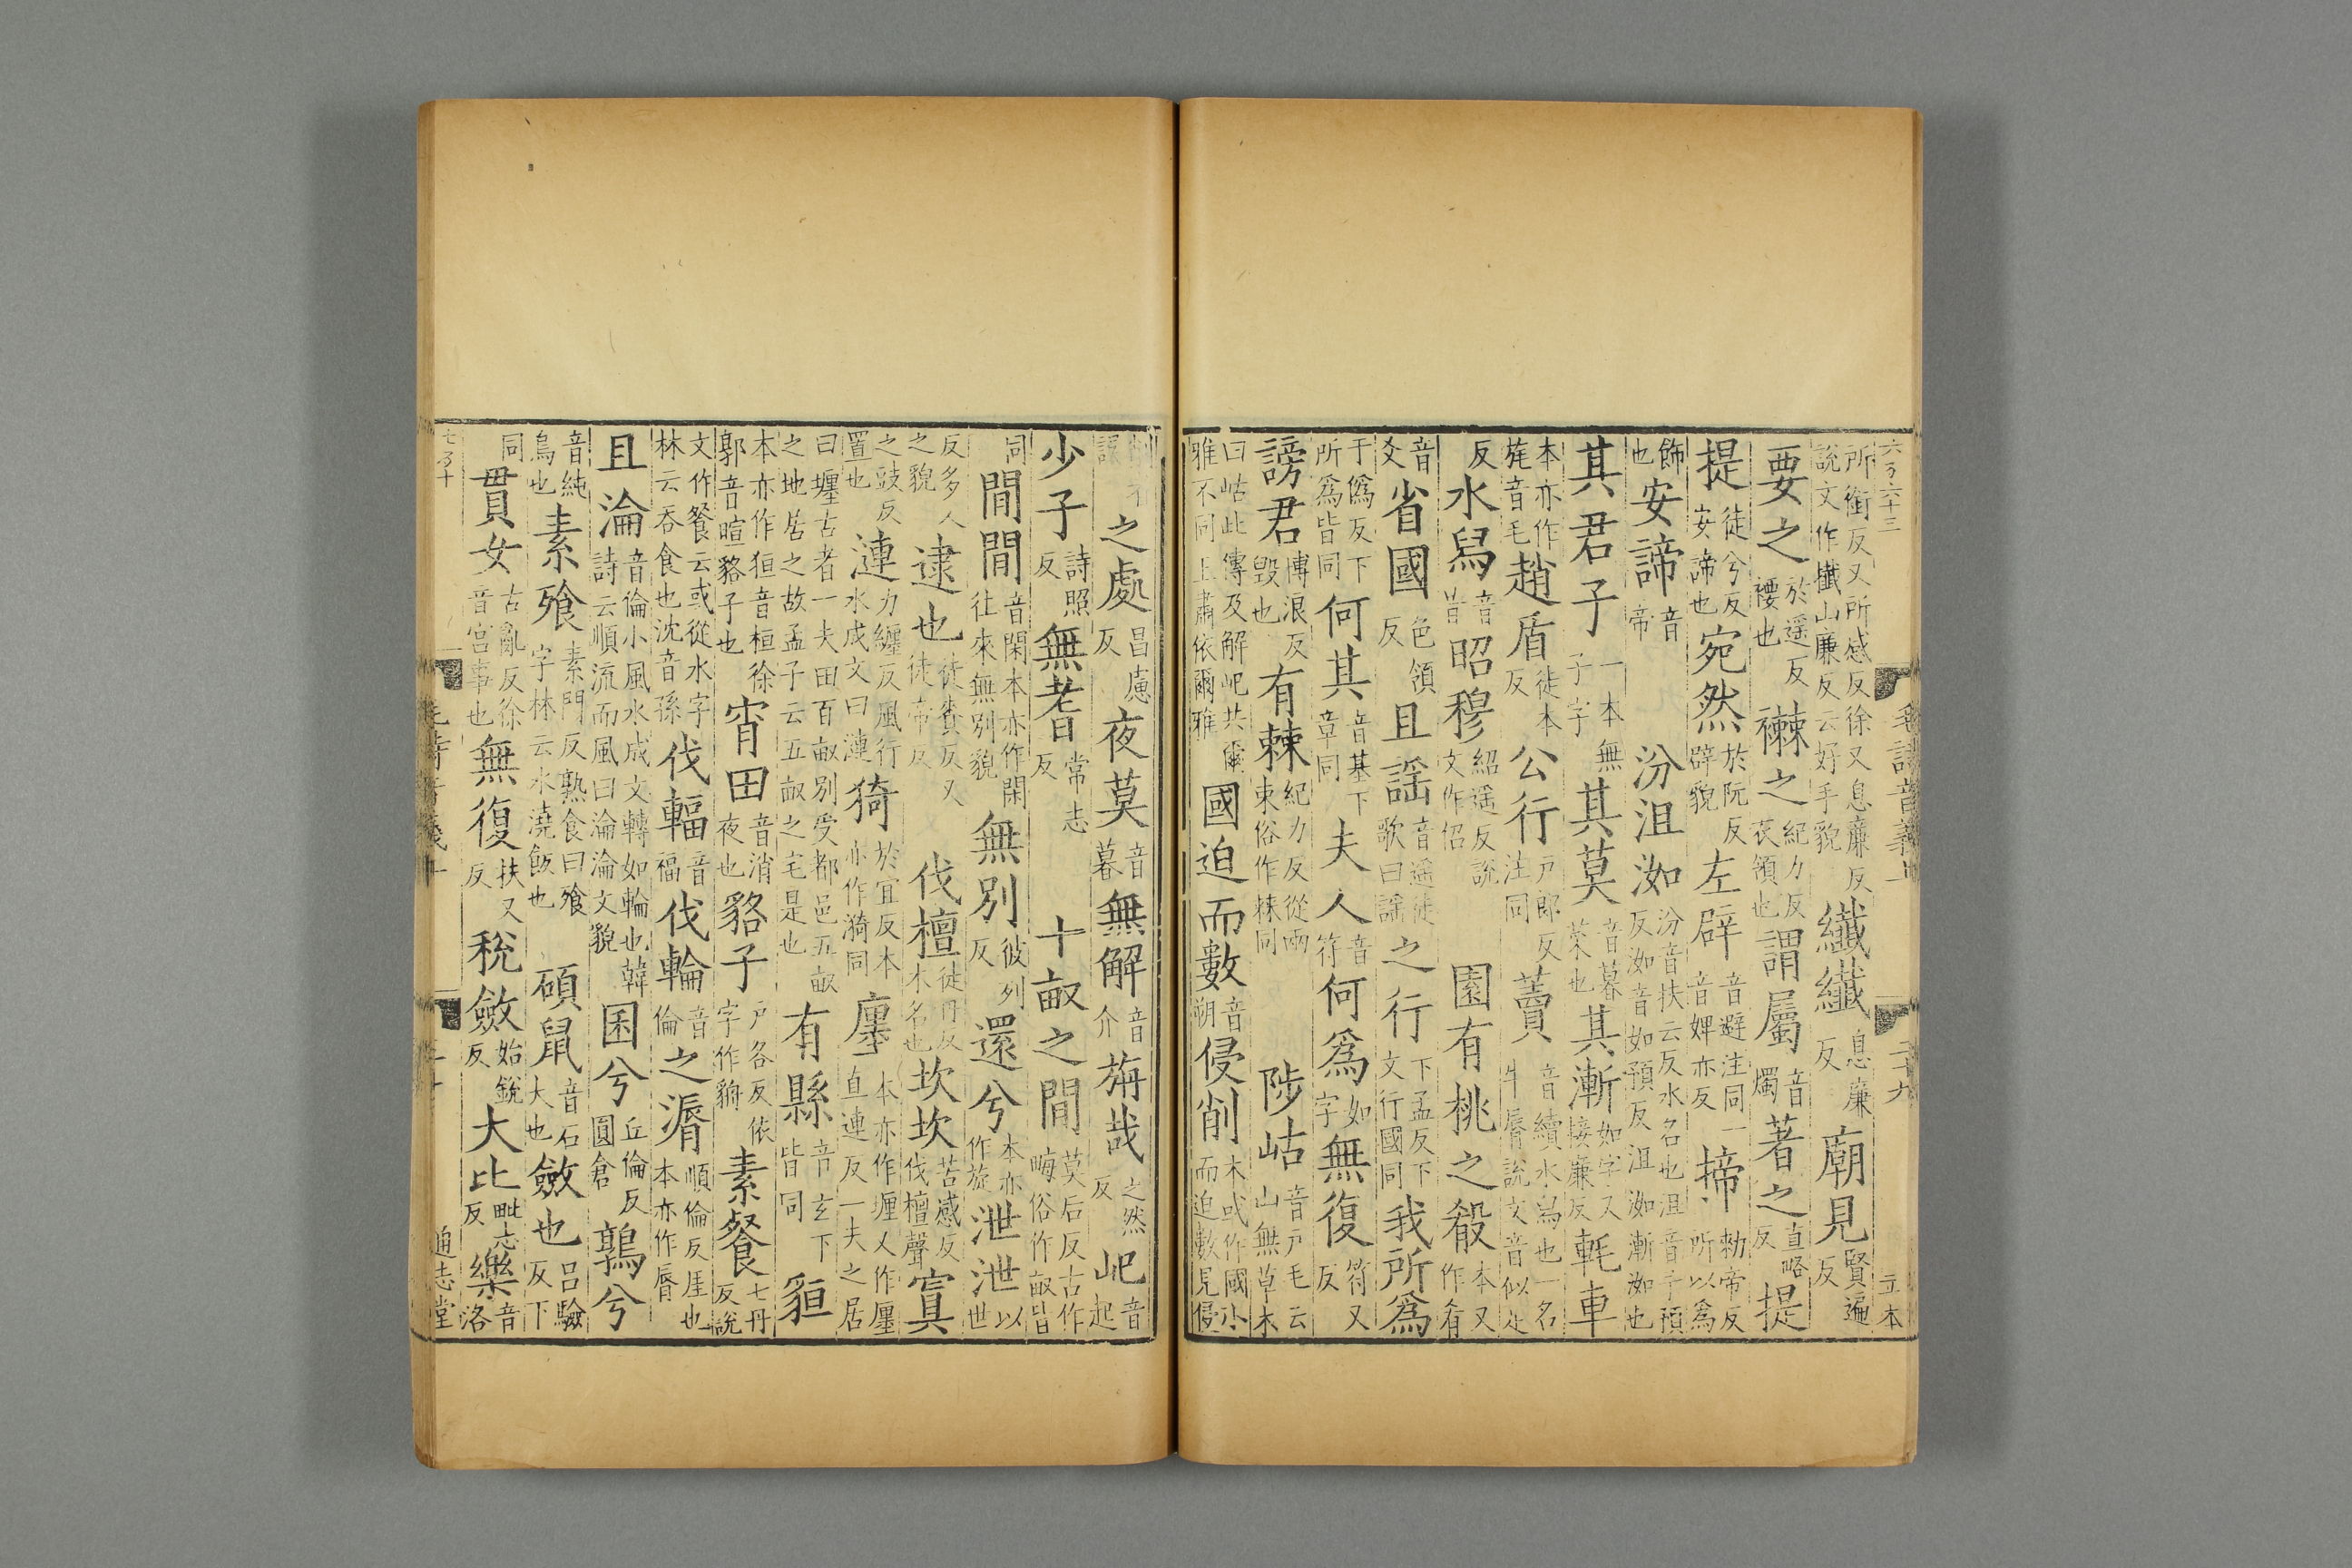 六百六十三 毛詩音義上 二十九 立本
所銜反又所感反徐又息廉反說文作攕山廉反云好手貌纖纖息廉反廟見賢遍反
要之於遥反䙅也襋之紀力反衣領也謂屬音燭著之直略反提
提徒兮反安諦也宛然於阮反辟貌左辟音避注同一音婢亦反揥勑帝反所以為
飾也安諦音帝汾沮洳汾音扶云反水名也沮音子預反洳音如預反沮洳漸洳也
其君子一本無子字其莫音暮菜也其漸如字又接廉反軞車
本亦作旄音毛趙盾徒本反公行戸郎反注同藚音續水舄也一名牛脣說文音似足
反水舄音昔昭穆紹遥反說文作佋園有桃之殽本又作肴
音爻省國色領反且謡音遥徒歌曰謡之行下孟反下文行國同我所爲
于僞反下所爲皆同何其音基下章同夫人音符何爲如字無復符又反
謗君博浪反毀也有棘紀力反從兩朿俗作棘同陟岵音戸毛云山無草木
曰岵此傳及解屺共爾雅不同王肅依爾雅國迫而數音朔侵削本或作國小而迫數見侵
削誤之處昌慮反夜莫音暮無解音介旃哉之然反屺音起
少子詩照反無耆常志反十畝之間莫后反古作畮俗作畝皆
同閒閒音閑本亦作閑往來無別貌無別彼列反還兮本亦作旋泄泄以世
反多人之貌逮也徒賚反又徒帝反伐檀徒丹反木名也坎坎苦感反伐檀聲寘
之豉反置也漣力纏反風行水成文曰漣猗於宜反本亦作漪同廛本亦作㕓又作厘直連反一夫之居
曰㕓古者一夫田百畝別受都邑五畝之地居之故孟子云五畝之宅是也有縣音玄下皆同貆
本亦作狟音桓徐郭音暄貉子也宵田音消夜也貉子戸各反依字作貈素餐七丹反說
文作餐云或從水字林云吞食也沈音孫伐輻音福伐輪音倫之漘順倫反厓也本亦作脣
且淪音倫小風水成文轉如輪也韓詩云順流而風曰淪淪文貌囷兮丘倫反圓倉鶉兮
音純鳥也素飱素門反熟食曰飱字林云水澆飯也碩鼠音石大也斂也呂驗反下
同貫女古亂反徐音官事也無復扶又反稅斂始銳反大比毗志反樂音洛
七百十 毛詩音義上 三十 通志堂